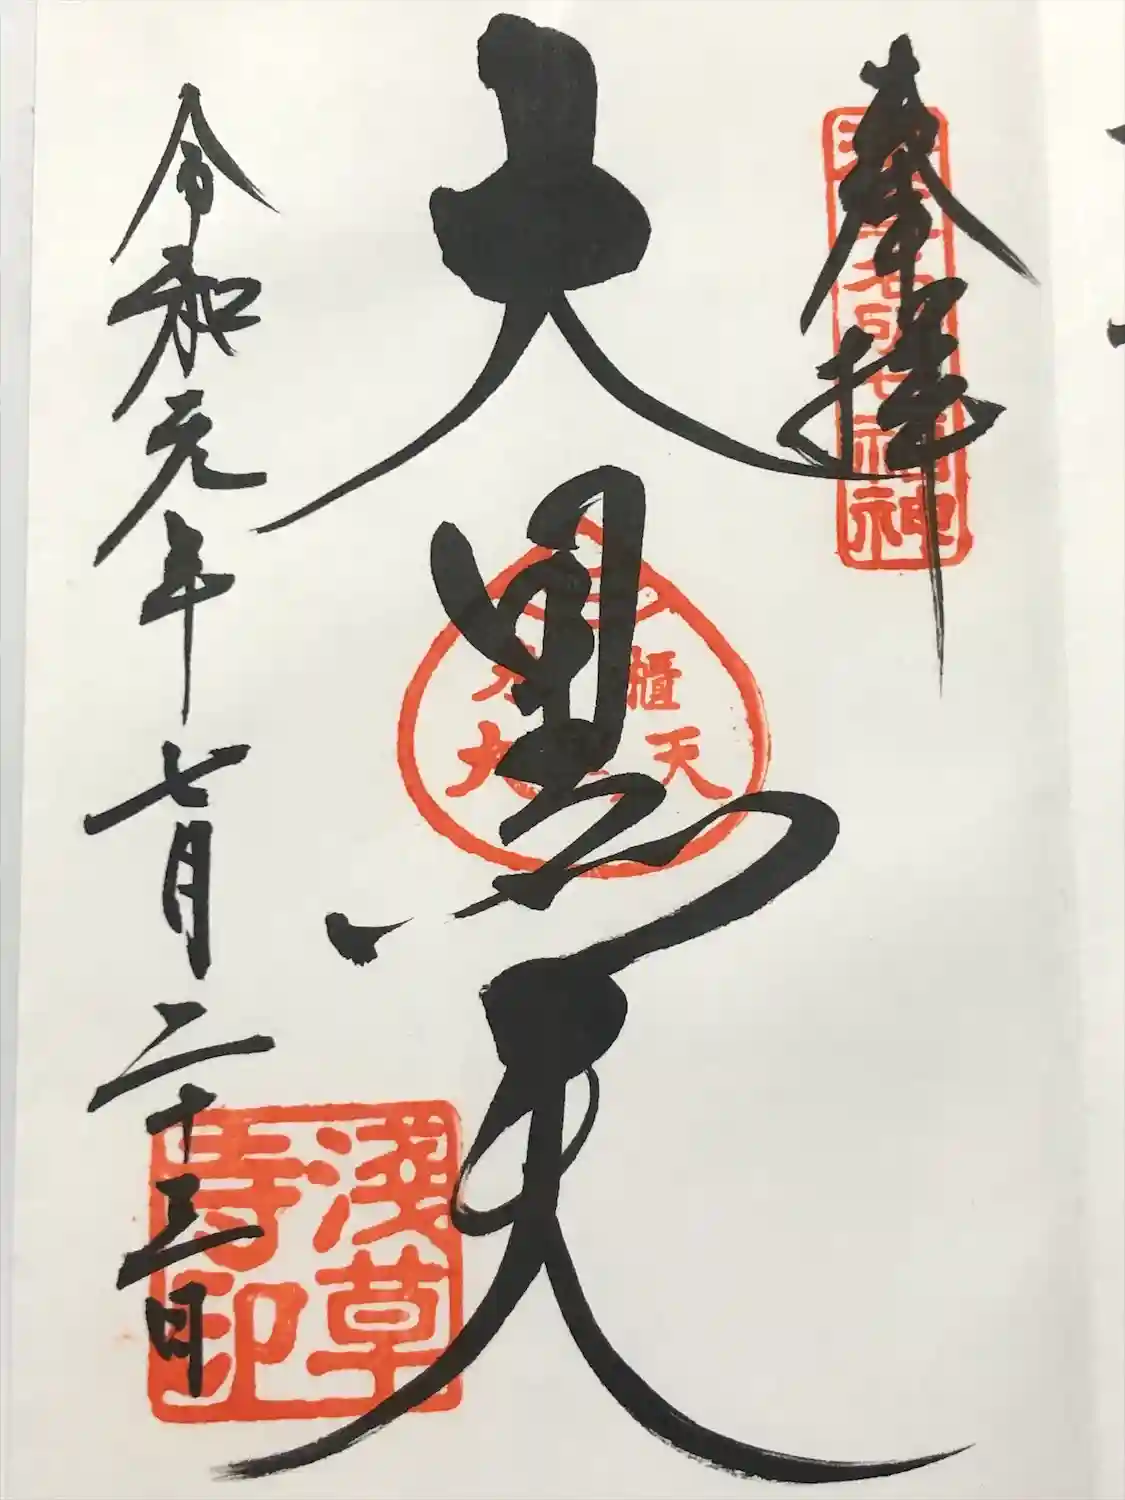 奉拝
大黒天
令和元年七月二十三日
淺草
寺印